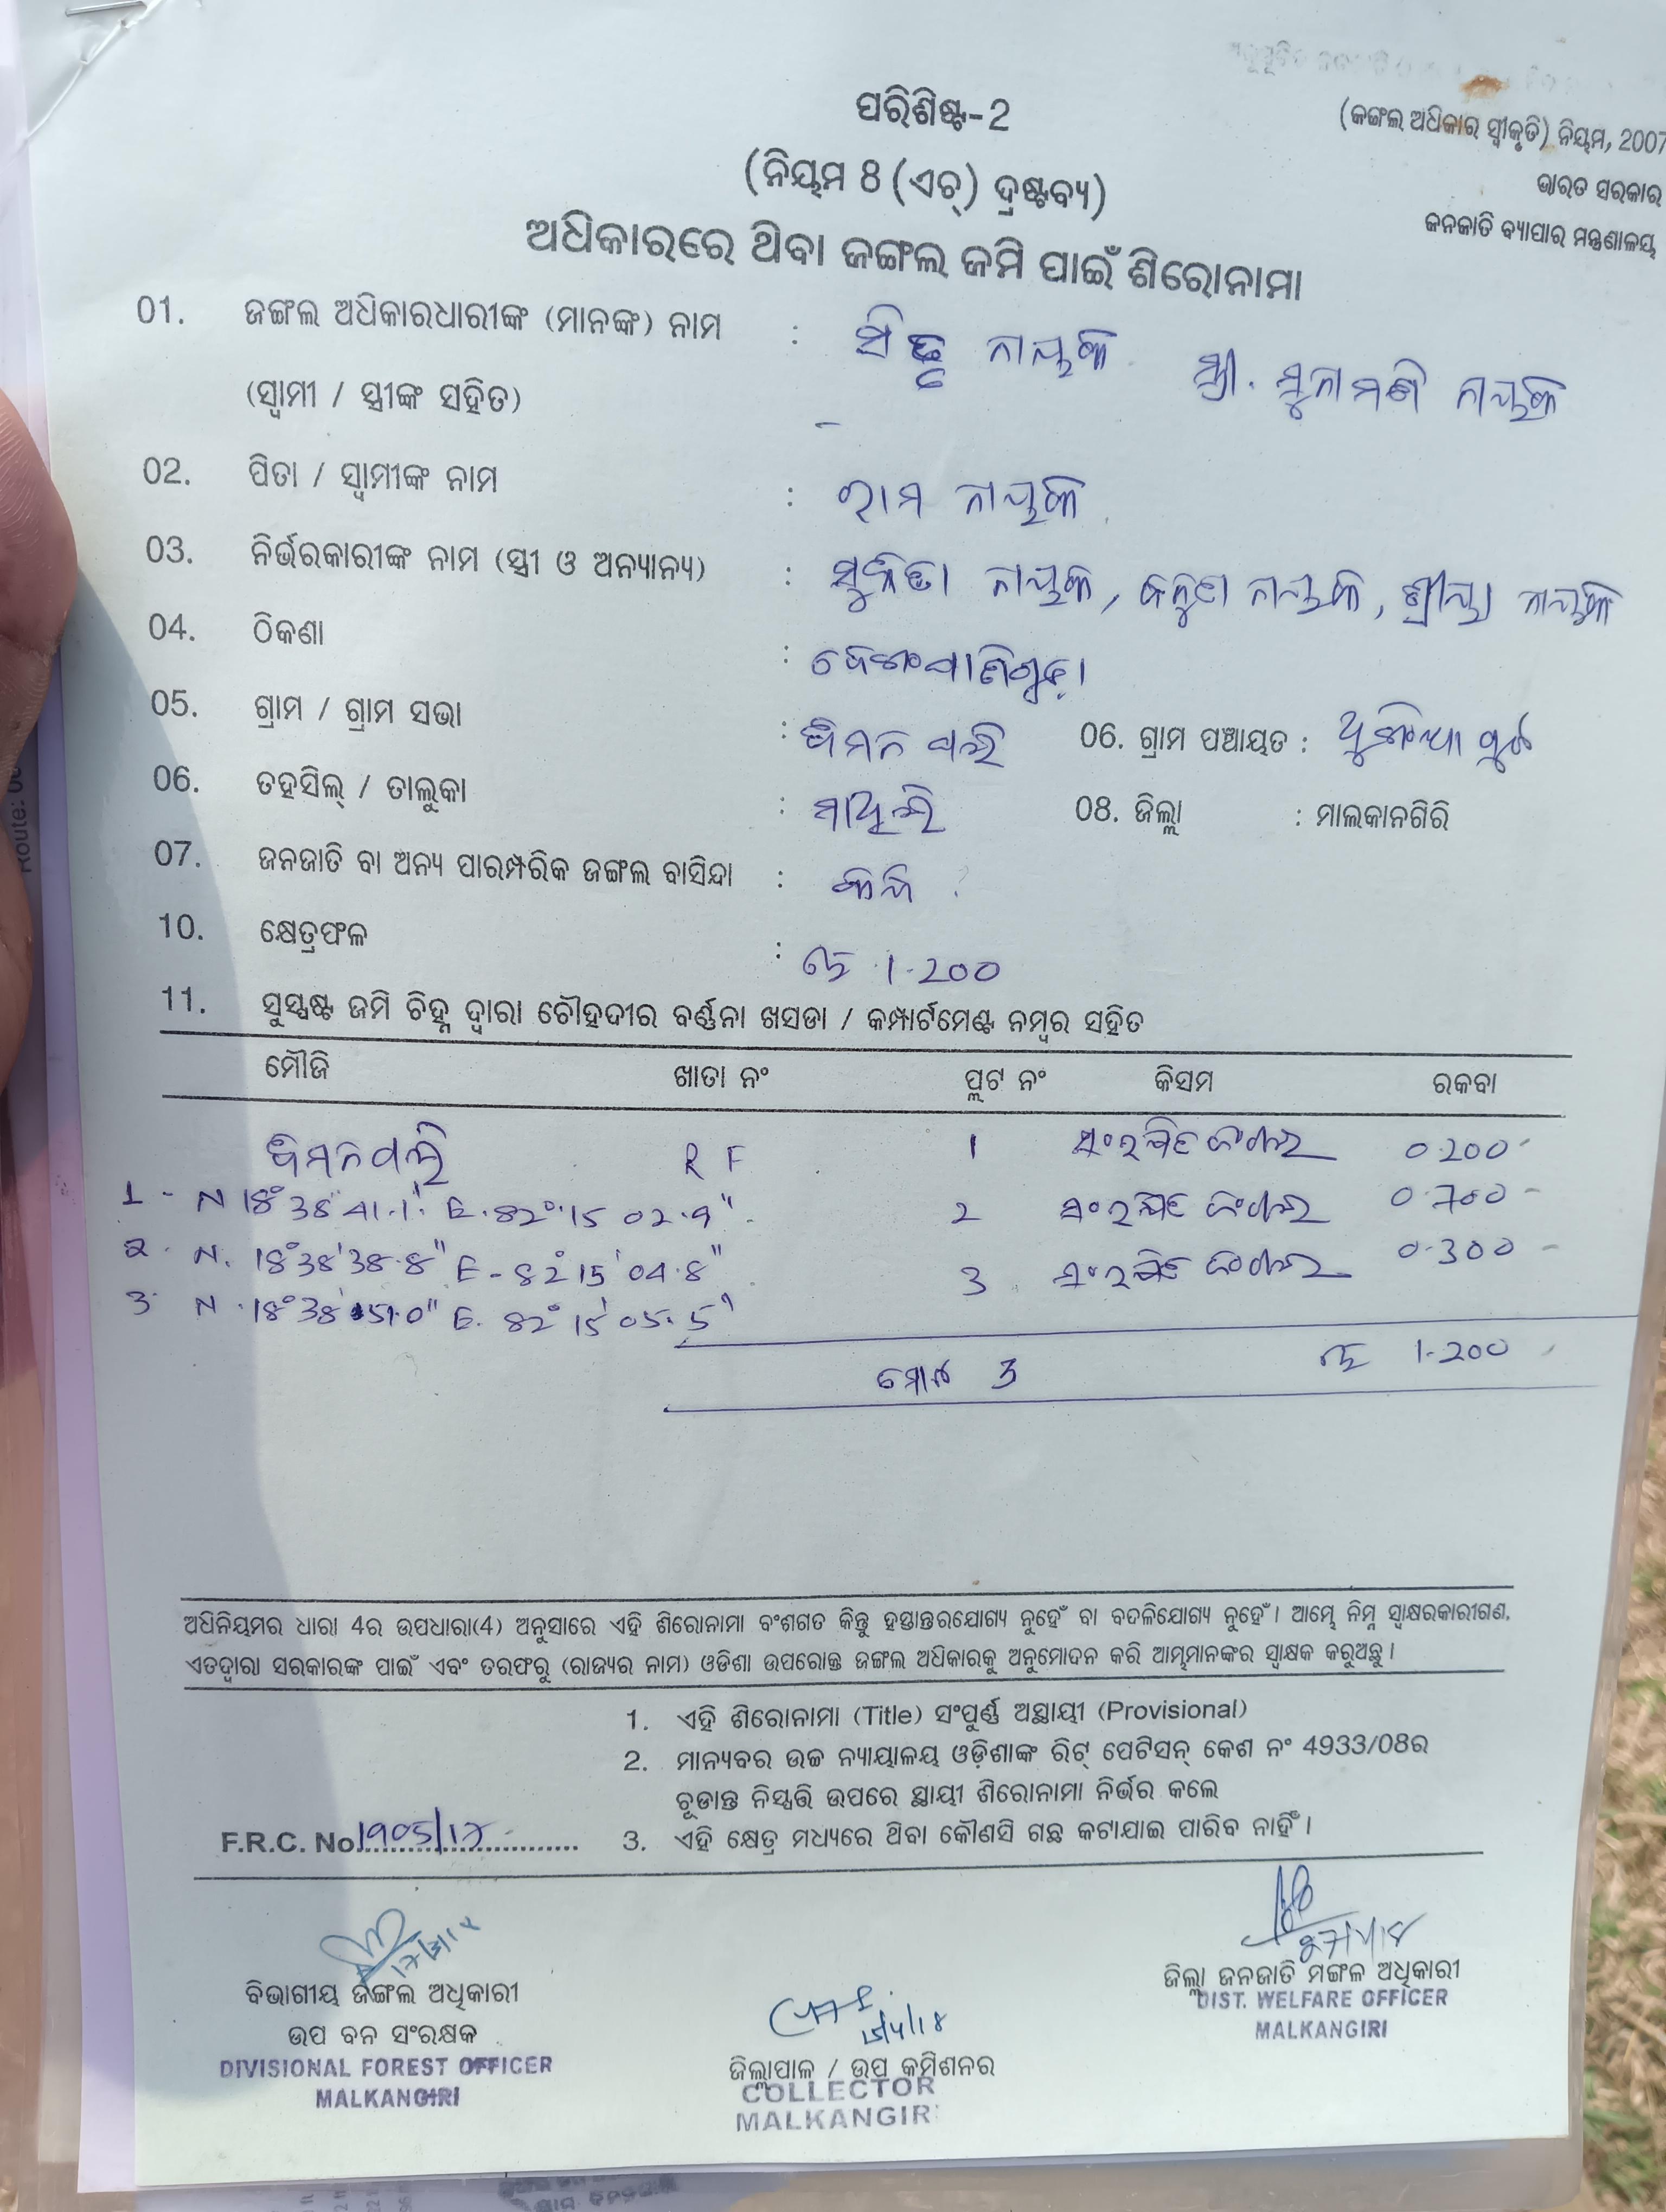 ପରିଶିଷ୍ଟ-2
(ଜଙ୍ଗଲ ଅଧିକାର ସ୍ୱୀକୃତି) ନିୟମ, 2007
(ନିୟମ 8 (ଏଚ୍) ଦ୍ରଷ୍ଟବ୍ୟ)
ଭାରତ ସରକାର
ଜନଜାତି ବ୍ୟାପାର ମନ୍ତ୍ରଣାଳୟ
ଅଧିକାରରେ ଥିବା ଜଙ୍ଗଲ ଜମି ପାଇଁ ଶିରୋନାମା
01. ଜଙ୍ଗଲ ଅଧିକାରଧାରୀଙ୍କ (ମାନଙ୍କ) ନାମ : ନାୟକ ସ୍ତ୍ରୀ. ସୁନାମଣି ନାୟକ
(ସ୍ୱାମୀ / ସ୍ତ୍ରୀଙ୍କ ସହିତ)
02. ପିତା / ସ୍ୱାମୀଙ୍କ ନାମ : ରାମ ନାୟକ
03. ନିର୍ଭରକାରୀଙ୍କ ନାମ (ସ୍ତ୍ରୀ ଓ ଅନ୍ୟାନ୍ୟ) : ନାୟକ, ନାୟକ, ନାୟକ
04. ଠିକଣା :
05. ଗ୍ରାମ / ଗ୍ରାମ ସଭା : 06. ଗ୍ରାମ ପଞ୍ଚାୟତ :
06. ତହସିଲ୍ / ତାଲୁକା : 08. ଜିଲ୍ଲା : ମାଲକାନଗିରି
07. ଜନଜାତି ବା ଅନ୍ୟ ପାରମ୍ପରିକ ଜଙ୍ଗଲ ବାସିନ୍ଦା :
10. କ୍ଷେତ୍ରଫଳ : 1.200
11. ସୁସ୍ପଷ୍ଟ ଜମି ଚିହ୍ନ ଦ୍ୱାରା ଚୌହଦୀର ବର୍ଣ୍ଣନା ଖସଡା / କମ୍ପାର୍ଟମେଣ୍ଟ ନମ୍ବର ସହିତ
ମୌଜି ଖାତା ନଂ ପ୍ଲଟ ନଂ କିସମ ରକବା
R F 1 ସଂରକ୍ଷିତ ଜଂଗଲ 0.200
1 - N 18° 38' 41.1" E. 82° 15 02.9" 2 ସଂରକ୍ଷିତ ଜଂଗଲ 0.700
2. N. 18° 38' 38.8" E - 82° 15' 04.8" 3 ସଂରକ୍ଷିତ ଜଂଗଲ 0.300
3. N. 18° 38' 51.0" E. 82° 15' 05.5"
ମୋଟ 3 1.200
ଅଧିନିୟମର ଧାରା 4ର ଉପଧାରା(4) ଅନୁସାରେ ଏହି ଶିରୋନାମା ବଂଶଗତ କିନ୍ତୁ ହସ୍ତାନ୍ତରଯୋଗ୍ୟ ନୁହେଁ ବା ବଦଳିଯୋଗ୍ୟ ନୁହେଁ। ଆମ୍ଭେ ନିମ୍ନ ସ୍ୱାକ୍ଷରକାରୀଗଣ,
ଏତଦ୍ୱାରା ସରକାରଙ୍କ ପାଇଁ ଏବଂ ତରଫରୁ (ରାଜ୍ୟର ନାମ) ଓଡିଶା ଉପରୋକ୍ତ ଜଙ୍ଗଲ ଅଧିକାରକୁ ଅନୁମୋଦନ କରି ଆମ୍ଭମାନଙ୍କର ସ୍ୱାକ୍ଷକ କରୁଅଛୁ।
1. ଏହି ଶିରୋନାମା (Title) ସଂପୂର୍ଣ୍ଣ ଅସ୍ଥାୟୀ (Provisional)
2. ମାନ୍ୟବର ଉଚ୍ଚ ନ୍ୟାୟାଳୟ ଓଡ଼ିଶାଙ୍କ ରିଟ୍ ପେଟିସନ୍ କେଶ ନଂ 4933/08ର
ଚୂଡାନ୍ତ ନିସ୍ପତ୍ତି ଉପରେ ସ୍ଥାୟୀ ଶିରୋନାମା ନିର୍ଭର କଲେ
F.R.C. No 3. ଏହି କ୍ଷେତ୍ର ମଧ୍ୟରେ ଥିବା କୌଣସି ଗଛ କଟାଯାଇ ପାରିବ ନାହିଁ।
ବିଭାଗୀୟ ଜଙ୍ଗଲ ଅଧିକାରୀ
ଉପ ବନ ସଂରକ୍ଷକ
DIVISIONAL FOREST OFFICER
MALKANGIRI
ଜିଲ୍ଲାପାଳ / ଉପ କମିଶନର
COLLECTOR
MALKANGIRI
ଜିଲ୍ଲା ଜନଜାତି ମଙ୍ଗଳ ଅଧିକାରୀ
DIST. WELFARE OFFICER
MALKANGIRI